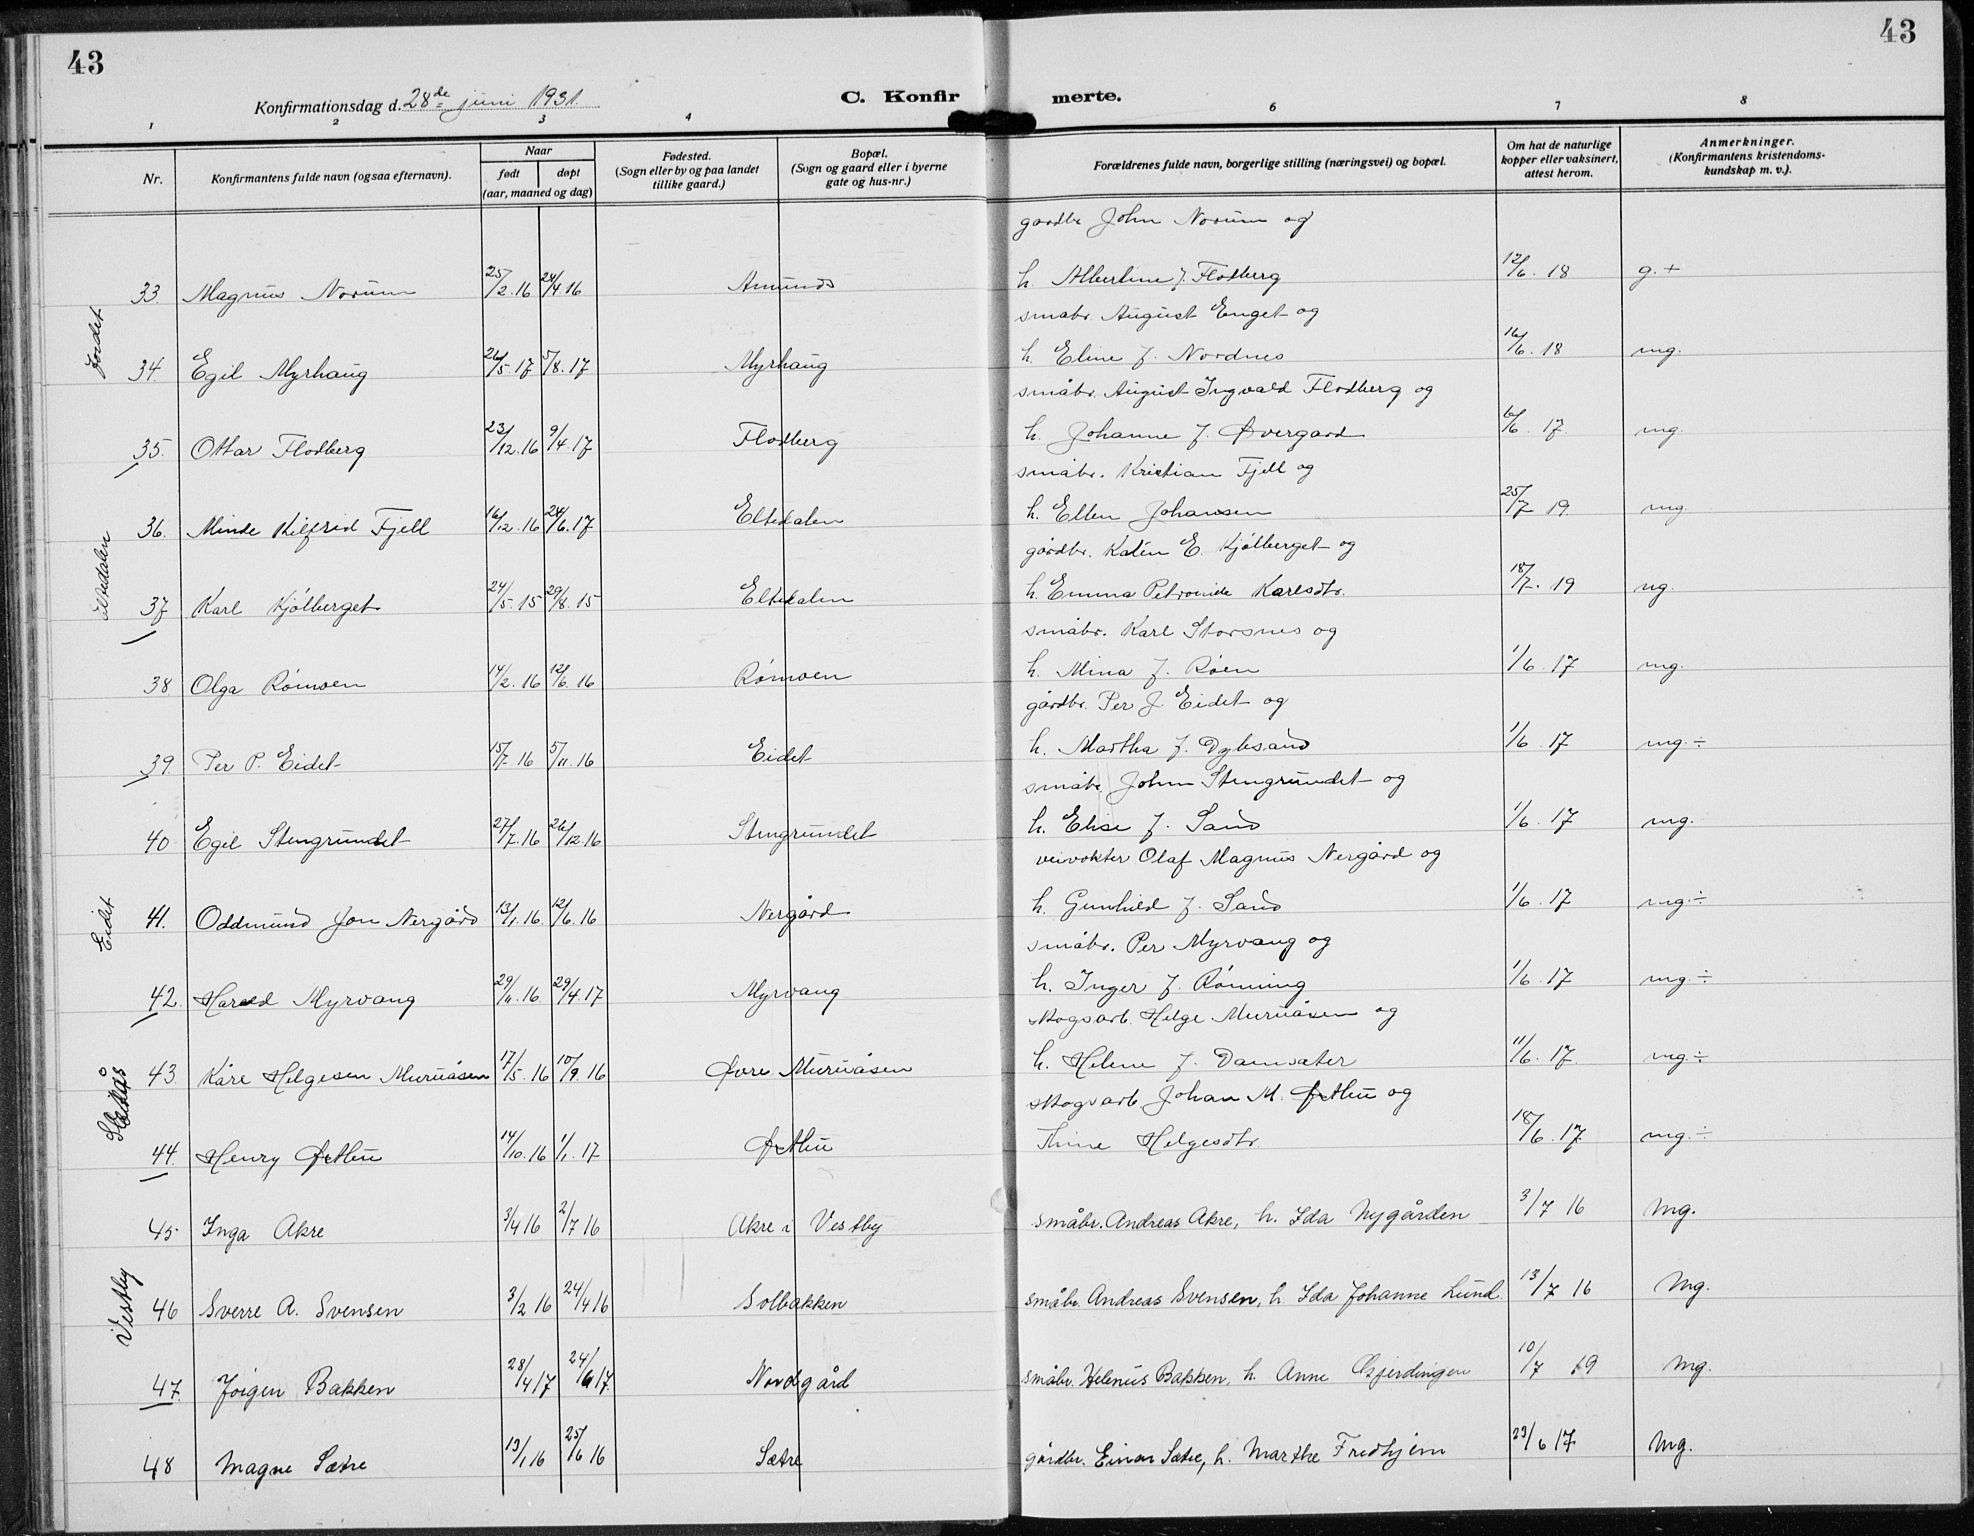 43
43
Konfirmationsdag d. 28de juni 1931.
C. Konfir
merte.
1 2 3 4 6 7 8
Nr.
Konfirmantens fulde navn (ogsaa efternavn).
Naar
født
døpt
(aar, maaned og dag)
Fødested.
(Sogn eller by og paa landet
tillike gaard.)
Bopæl.
(Sogn og gaard eller i byerne
gate og hus-nr.)
Forældrenes fulde navn, borgerlige stilling (næringsvei) og bopæl.
Om hat de naturlige
kopper eller vaksinert,
attest herom.
Anmerkninger.
(Konfirmantens kristendoms-
kundskap m. v.).
gardbr John Norum og
33. Magnus Norum 25/2.16 24/4.16 Amunds h. Albertine f. Flodberg 12/6.18 g.+
Jordet
småbr. August Enget og
34. Egil Myrhaug 26/5.17 5/8.17 Myrhaug h. Eline f. Nordnes 16/6.18 mg.
småbr. August Ingvald Flodberg og
35. Ottar Flodberg 23/12.16 9/4.17 Flodberg h. Johanne f. Øvergard 6/6.17 mg.
småbr. Kristian Fjell og
36. Minde Hilfrid Fjell 16/12.16 24/6.17 Eltdalen h. Ellen Johansen 25/7 19 mg
Eltdalen
gårdbr. Katén E. Kjølberget og
37 Karl Kjølberget 24/5.15 29/8.15 Eltdalen h. Emma Petronide Karlsdtr. 18/7.19 ng.
småbr. Karl Storsnes og
38 Olga Rømoen 14/2.16 12/6.16 Rømoen h. Mina f. Røen 1/6.17 mg.
gårdbr. Per J Eidet og
39. Per P. Eidet 15/7 16 5/11.16 Eidet h. Martha f. Dybsand 1/6.17 mg.÷
småbr. John Stengrundet og
40 Egil Stengrundet 27/7.16 26/12.16 Stengrundet h. Elise f. Sand 1/6.17 mg.
veivokter Olaf Magnus Nergård og
Eidet
41. Oddmund Jon Nergård 13/1.16 12/6.16 Nergård h. Gunhild f. Sand 1/6.17 mg.÷
småbr. Per Myrvang og
42. Harald Myrvang 29/11.16 29/4.17 Myrvang h. Inger f. Rønning 1/6.17 mg÷
skogsarb. Helge Muruåsen og
43. Kåre Helgesen Muruåsen 17/5.16 10/9.16 Øvre Muruåsen h. Helene f. Damsæter 11/6.17 mg.÷
skogsarb Johan M. og
44. Henry 14/10.16 1/1.17 Thine Helgesdtr. 18/6.17 mg.÷
45 Inga Akre 3/4 16 2/7 16 Akre i Vestby småbr. Andreas Akre, h. Ida Nygården 3/7 16 Mg.
Vestby
46 Sverre A. Svensen 3/2 16 24/4 16 Solbakken småbr. Andreas Svensen, h. Ida Johanne Lund. 13/7 16 Mg.
47. Jørgen Bakken 28/4 17 24/6 17 Nordgård småbr. Helenus Bakken, h. Anne Gjerdingen 10/7 19 Mg.
48 Magne Sætre 19/1 16 25/6 16 Sætre gårdbr. Einar Sætre, h. Marthe Fredhjem 23/6 17 Mg.